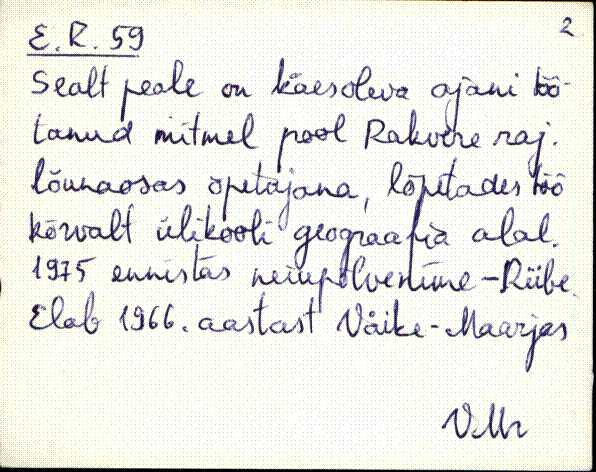 2
E. R. 59
Sealt peale on käesoleva ajani töö-
tanud mitmel pool Rakvere raj.
lõunaosas õpetajana, lõpetades töö
kõrvalt ülikooli geograafia alal.
1975 ennistas neiupõlvenime - Rübe.
Elab 1966. aastast Väike-Maarjas
VMr